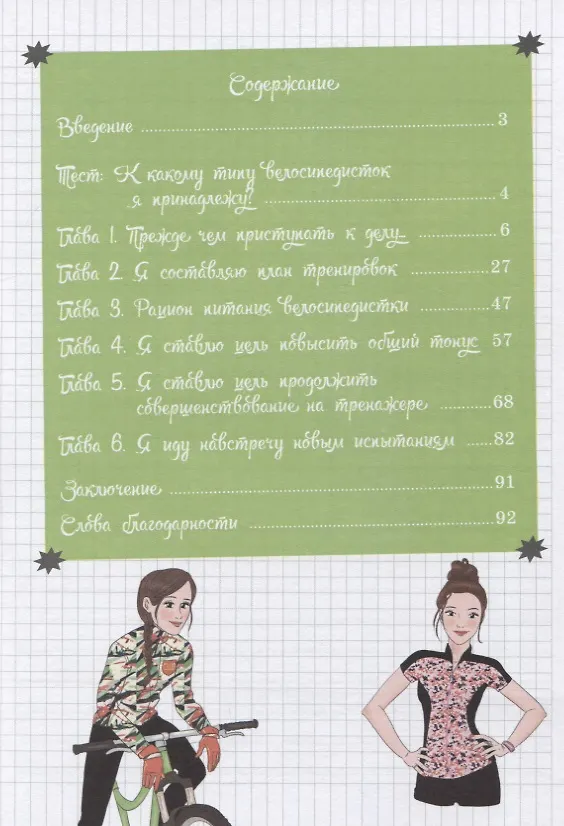 Содержание
Введение 3
Тест: К какому типу велосипедисток
я принадлежу? 4
Глава 1. Прежде чем приступать к делу 6
Глава 2. Я составляю план тренировок 27
Глава 3. Рацион питания велосипедистки 47
Глава 4. Я ставлю цель повысить общий тонус 57
Глава 5. Я ставлю цель продолжить
совершенствование на тренажере 68
Глава 6. Я иду навстречу новым испытаниям 82
Заключение 91
Слова благодарности 92